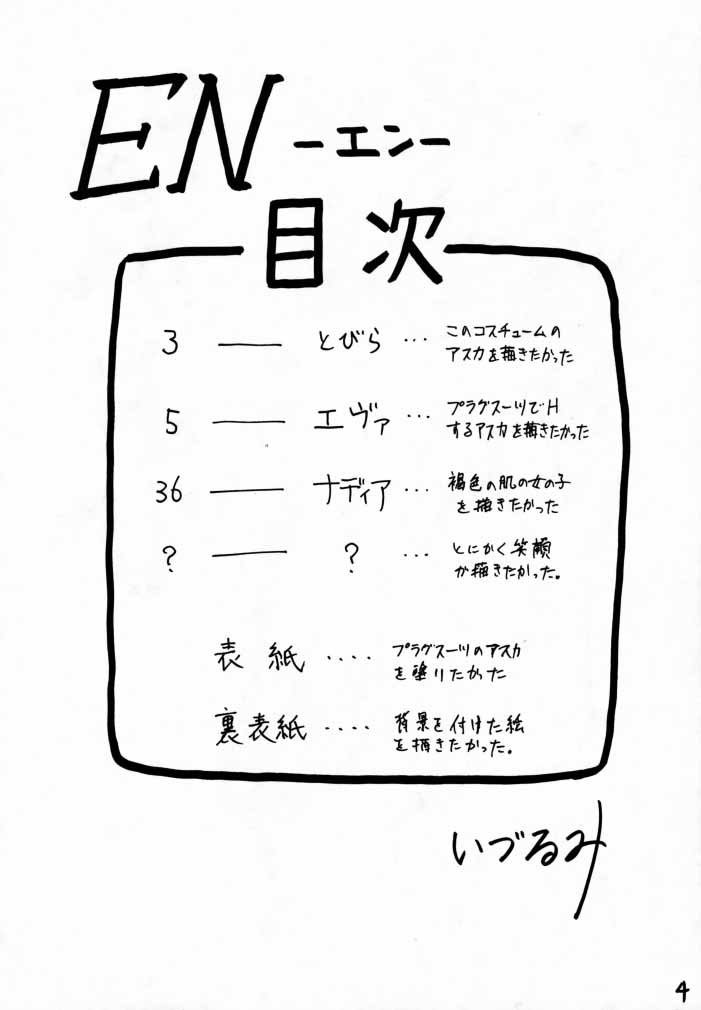 EN -エン-
目次
3 — とびら … このコスチュームの
アスカを描きたかった
5 — エヴァ … プラグスーツでH
するアスカを描きたかった
36 — ナディア … 褐色の肌の女の子
を描きたかった
? — ? … とにかく笑顔
が描きたかった。
表紙 …. プラグスーツのアスカ
を塗りたかった
裏表紙 …. 背景を付けた絵
を描きたかった。
いづるみ
4